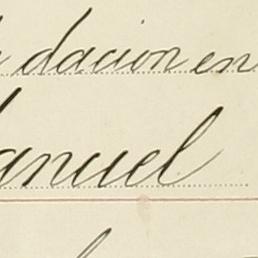 dacion en
anuel